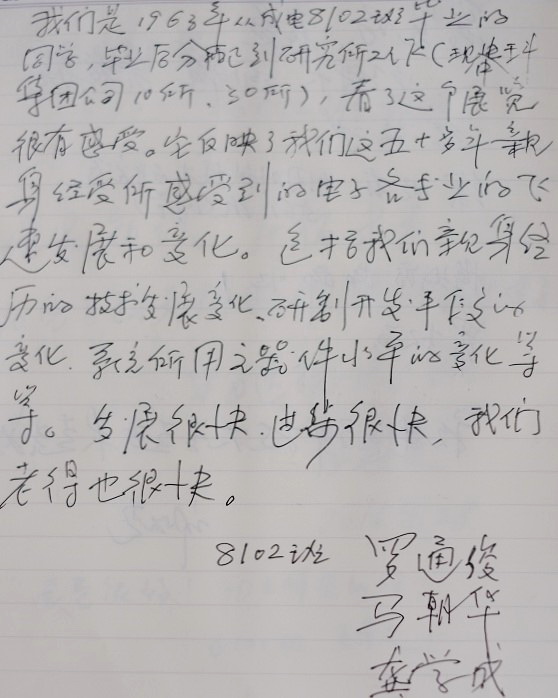 我们是1963年从成电8102班毕业的
同学,毕业后分配到研究所工作(现电科
集团公司10所、30所),看了这个展览
很有感受。它反映了我们这五十多年亲
身经受所感受到的电子各专业的飞
速发展和变化。包括我们亲身经
历的技术发展变化、研制开发手段的
变化、系统所用之器件水平的变化等
等。发展很快,进步很快,我们
老得也很快。
8102班 罗通俊
马朝华
龚学成